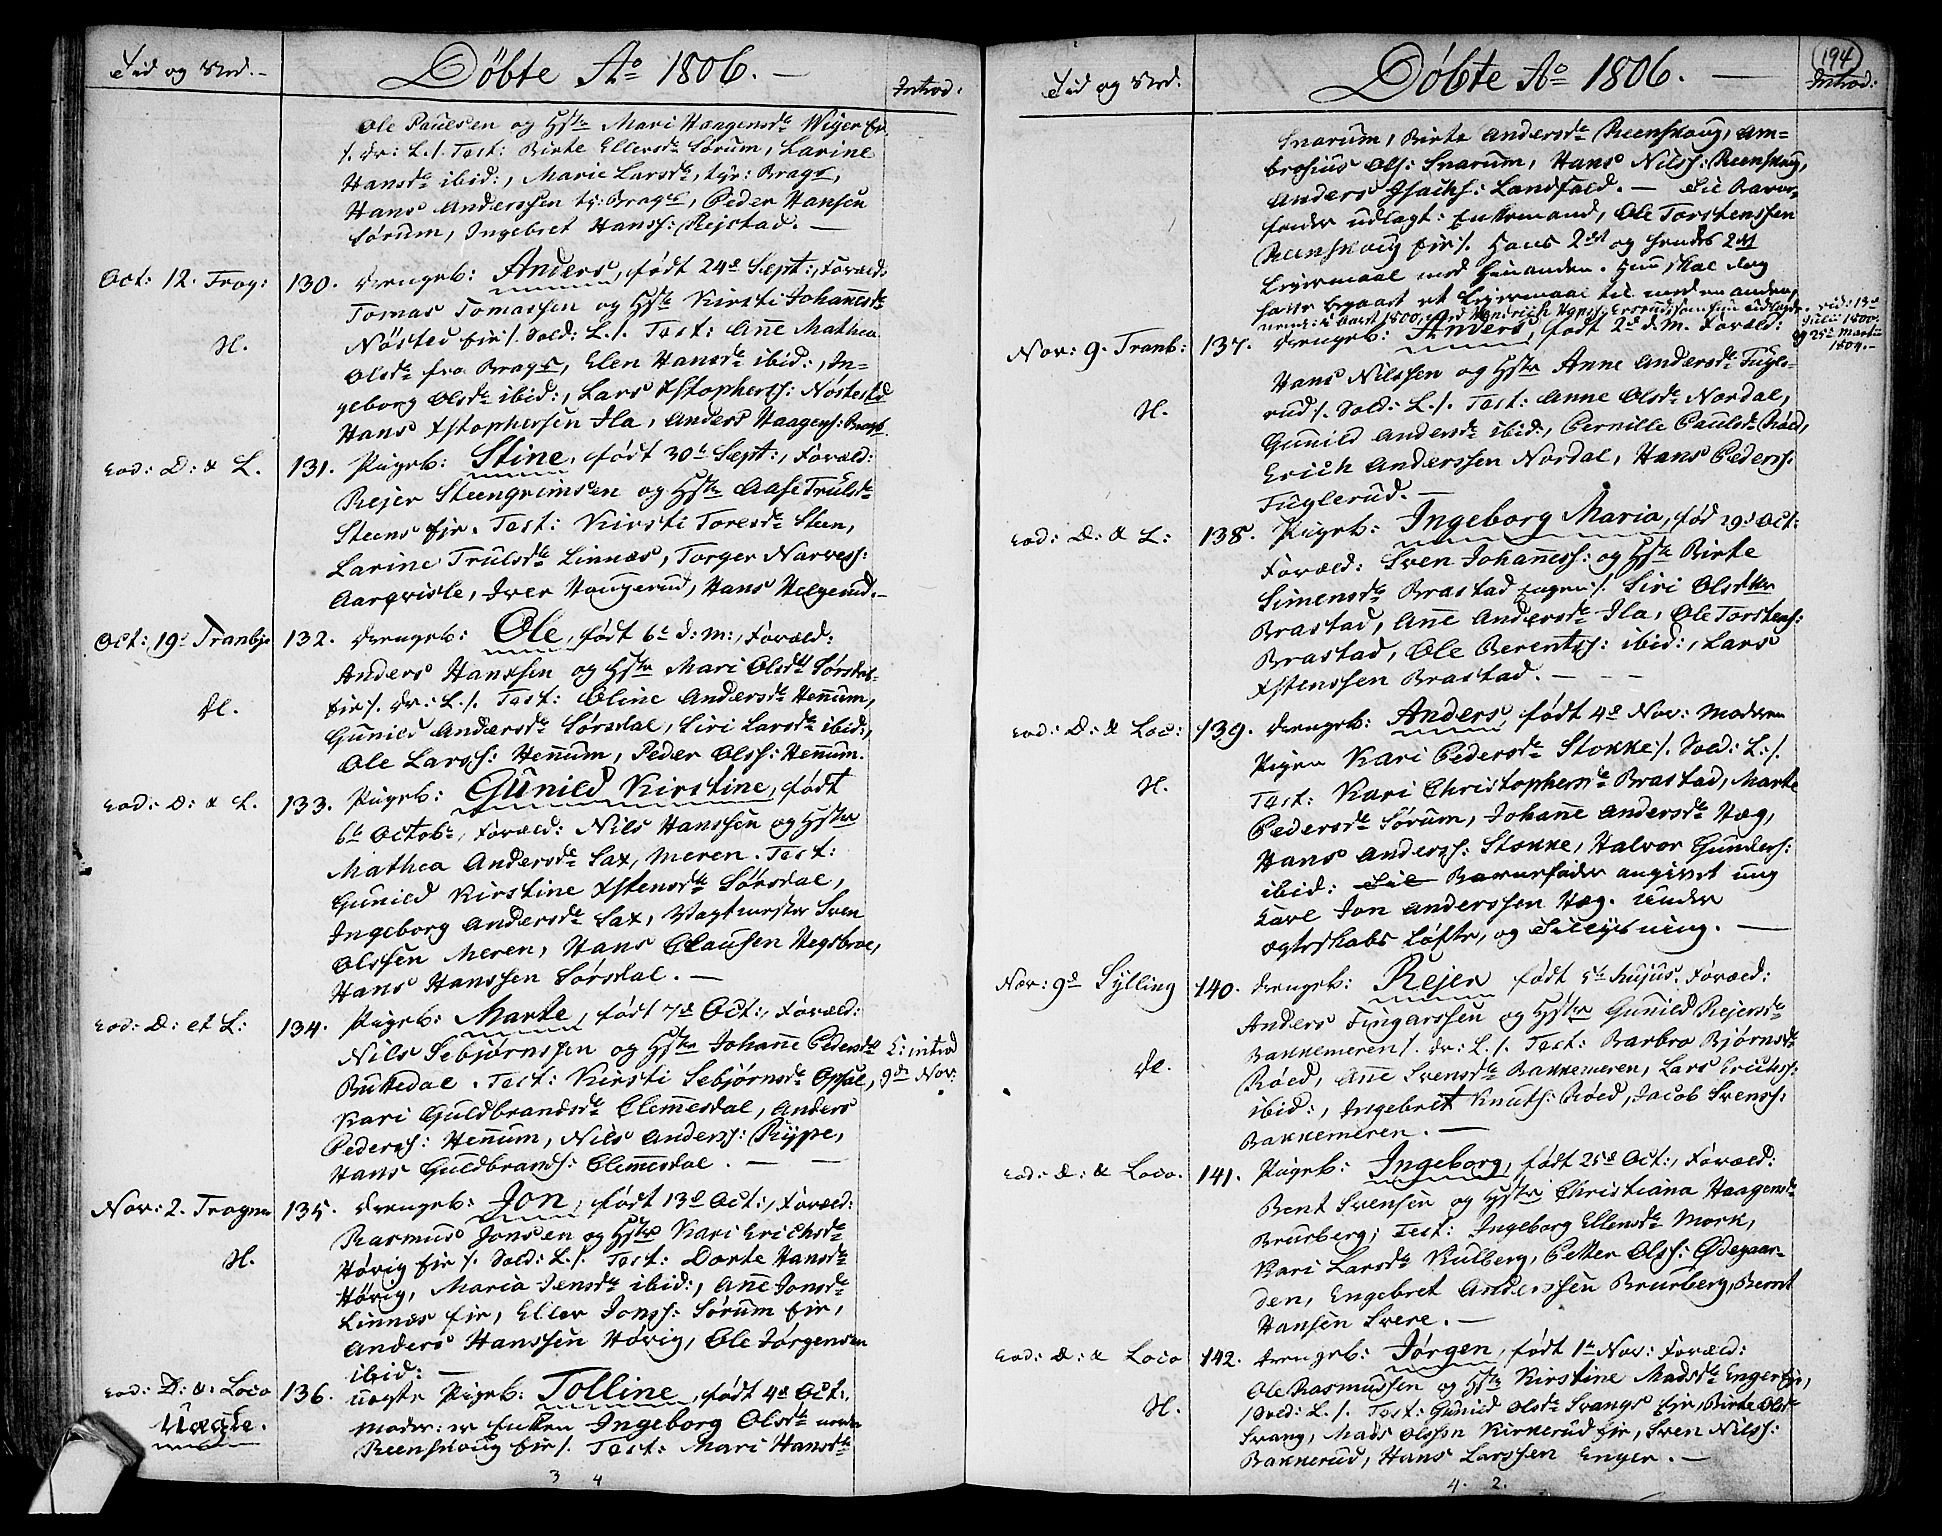 Tid og Sted.
Døbte Ao 1806.
Introd:
Ole Paulsen og Hstr Mari Haagensdr Wejer Ejr
/. dr: L./. Test: Birte Ellersdr Sørum, Larine
Hansdr ibid:, Marie Larsdr, tjr: Bragr,
Hans Anderssen tj: Bragr, Peder Hansen
Sørum, Ingebret Hanss: Rejstad. —
Oct: 12. Trog:
130. Drengeb: Anders, født 24de Sept:, Foræld:
Tomas Tomassen og Hstr Kirsti Johanesdr
Nøsted Ejr /. Sold: L./. Test: Ane Mathea
H.
Olsdr fra Bragr, Elen Hansdr ibid:, In=
geborg Olsdr ibid:, Lars Xstophers: Nøstested
Hans Xstophersen Ila, Anders Haagens: Bragr.
eod: D: & L.
131. Pigeb: Stine, født 30te Sept:, Foræld:
Rejer Steengrimsen og Hstr Aase Trulsdr
Steens Ejr. Test: Kirsti Toresdr Steen,
Larine Trulsdr Linnæs, Torger Narvess:
Aarqvisle, Iver Haugerud, Hans Helgerud. —
Oct: 19de Tranbye
132. Drengeb: Ole, født 6te d: m:, Foræld:
Anders Hanssen og Hstr Mari Olsdr Sørsdals
Ejr /. dr: L./. Test: Oline Andersdr Henum,
dr.
Gunild Andersdr Sørsdal, Siri Larsdr ibid:,
Ole Larss: Henum, Peder Olss: Henum.
eod: D: & L.
133. Pigeb: Gunild Kirstine, født
6te Octobr, Foræld: Nils Hanssen og Hstr
Mathea Andersdr Sax, Meren. Test:
Gunild Kirstine Xstensdr Sørsdal,
Ingeborg Andersdr Sax, Vagtmester Sven
Olssen Meren, Hans Clausen Hegsbroe,
Hans Hanssen Sørsdal. —
eod: D: et L:
134. Pigeb: Marte, født 7de Oct:, Foræld:
Nils Sebjørnssen og Hstr Johane Pedersdr
Bukedal. Test: Kirsti Sebjørnsdr Opsal,
E: introd
9de Nov:
Kari Guldbrandsdr Clemesdal, Anders
Peders: Henum, Nils Anders: Rype,
Hans Guldbrands: Clemesdal. —
Nov: 2. Trogen
135. Drengeb: Jon, født 13de Oct:, Foræld:
Rasmus Jonsen og Hstr Kari Erichsdr
H.
Hørig Ejr /. Sold: L./. Test: Dorte Hansdr
Hørig, Maria Jensdr ibid:, Ane Jonsdr
Linnæs Ejr, Eller Jonss: Sørum Ejr,
Anders Hanssen Hørig, Ole Jørgensen
ibid: —
eod: D: & Loco
Uægte.
136. uægte Pigeb: Tolline, født 4de Oct:,
Moder: er Enken Ingeborg Olsdr
Reenskoug Ejr /. Test: Mari Hansdr
3 4
Tid og Sted.
Døbte Ao 1806. —
194
Introd:
Snarum, Birte Andersdr Reenskoug, Am=
brosius Ols: Snarum, Hans Nilss: Reenskoug,
Anders Isachs: Landfald. — Til Barne-
fader udlagt: Enkemand, Ole Torstenssen
Reenskoug Ejr /. Hans 2det og hendes 2det
Lejermaal med hinanden. Hun skal dog
have begaaet et Lejermaal til med en anden,
vid: 13de
Julii 1800.
og 25de Martii
1804. —
Nov: 9. Tranb:
137. Drengeb: Anders, født 2de d. M. Foræld:
Hans Nilssen og Hstr Anne Andersdr Fugle-
H.
rud /. Sold: L./. Test: Anne Olsdr Nordal,
Gunild Andersdr ibid:, Pernille Paulsdr Røed,
Erich Anderssen Nordal, Hans Peders:
Fuglerud. —
eod: D: & L:
138. Pigeb: Ingeborg Maria, fød 29de Oct:
Foræld: Sven Johaness: og Hstr Birte
Simensdr Brastad Eugen /. Siri Olsdtter
Brastad, Ane Andersdr Ila, Ole Torstens:
Brastad, Ole Berentss: ibid:, Lars
Xstenssen Brastad. — - -
eod: D: & Loc:
139. Drengeb: Anders, født 4de Nov: Moderen
Pigen Kari Pedersdr Stokke /. Sold: L:/.
H.
Test: Kari Christophersdr Brastad, Marte
Pedersdr Sørum, Johane Andersdr Hæg,
Hans Anderss: Stokke, Halvor Gunders:
ibid: Til Barnefader angivet ung
Karl Jon Anderssen Hæg. Under
Ægteskabs Løfte, og Tillysning. —
Nov: 9de Sylling
140. Drengeb: Rejer født 5te hujus. Foræld:
Anders Fingarssen og Hstr Gunild Rejersdr
dr.
Bakkemeren /. dr: L./. Test: Barbro Bjørnsdr
Røed, Ane Svensdr Bakkemeren, Lars Erichss:
ibid:, Ingebret Knuts: Røed, Jacob Svenss:
Bakkemeren. —
eod: D: & Loco.
141. Pigeb: Ingeborg, født 25de Oct:, Foræld:
Bent Svensen og Hstr Christiana Haagensdr
Brurberg; Test: Ingeborg Ellensdr Mork,
Kari Larsdr Kulberg, Petter Olss: Ødegaar-
den, Engebret Anderssen Brurberg, Bernt
Hansen Svere. —
eod: D: & Loco
142. Drengeb: Jørgen, født 1te Nov: Foræld:
Ole Rasmussen og Hstr Kirstine Madsdr Enger Ejr,
H.
/Sold: L./. Test: Gunild Olsdr Svangs Ejr, Birte Olsdr
Svang, Mads Olssen Kirkerud Ejr, Sven Nilss:
Bakkerud, Hans Larssen Enger. —
4. 2.